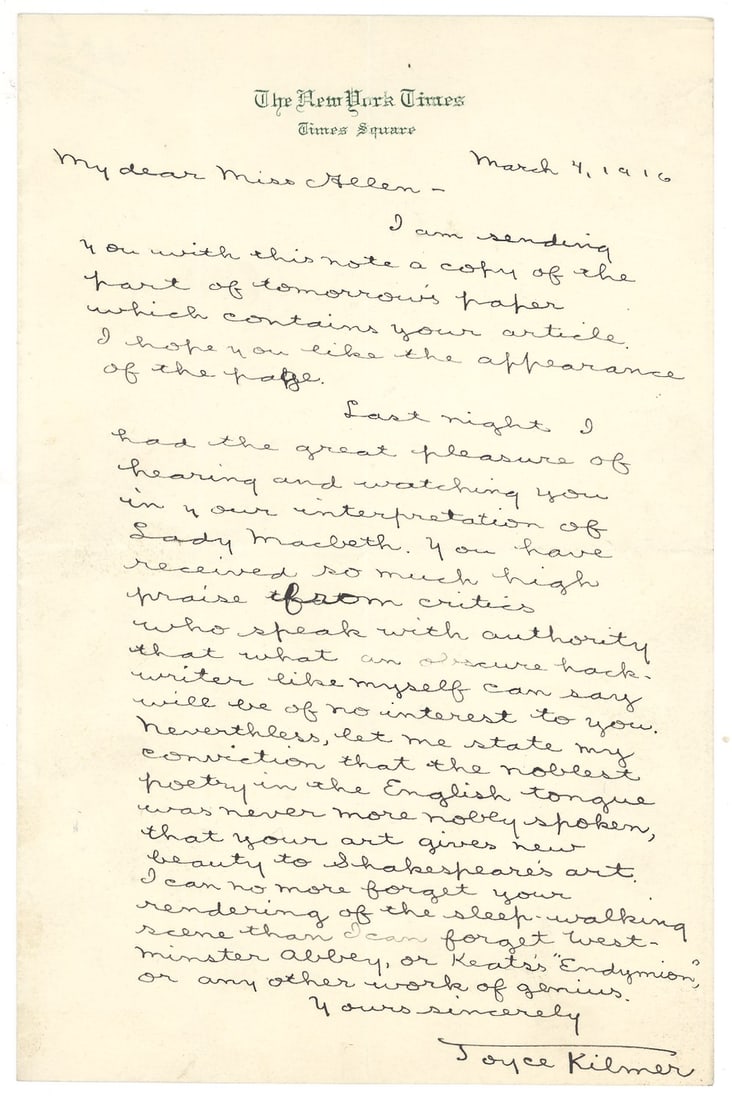 The New York Times
Times Square
March 4, 1916
My dear Miss Allen -
I am sending
you with this note a copy of the
part of tomorrow's paper
which contains your article.
I hope you like the appearance
of the page.
Last night I
had the great pleasure of
hearing and watching you
in your interpretation of
Lady Macbeth. You have
received so much high
praise from critics
who speak with authority
that what an obscure hack-
writer like myself can say
will be of no interest to you.
Neverthless, let me state my
conviction that the noblest
poetry in the English tongue
was never more nobly spoken,
that your art gives new
beauty to Shakespeare's art.
I can no more forget your
rendering of the sleep-walking
scene than I can forget West-
minster Abbey, or Keats's "Endymion",
or any other work of genius.
Yours sincerely
Joyce Kilmer